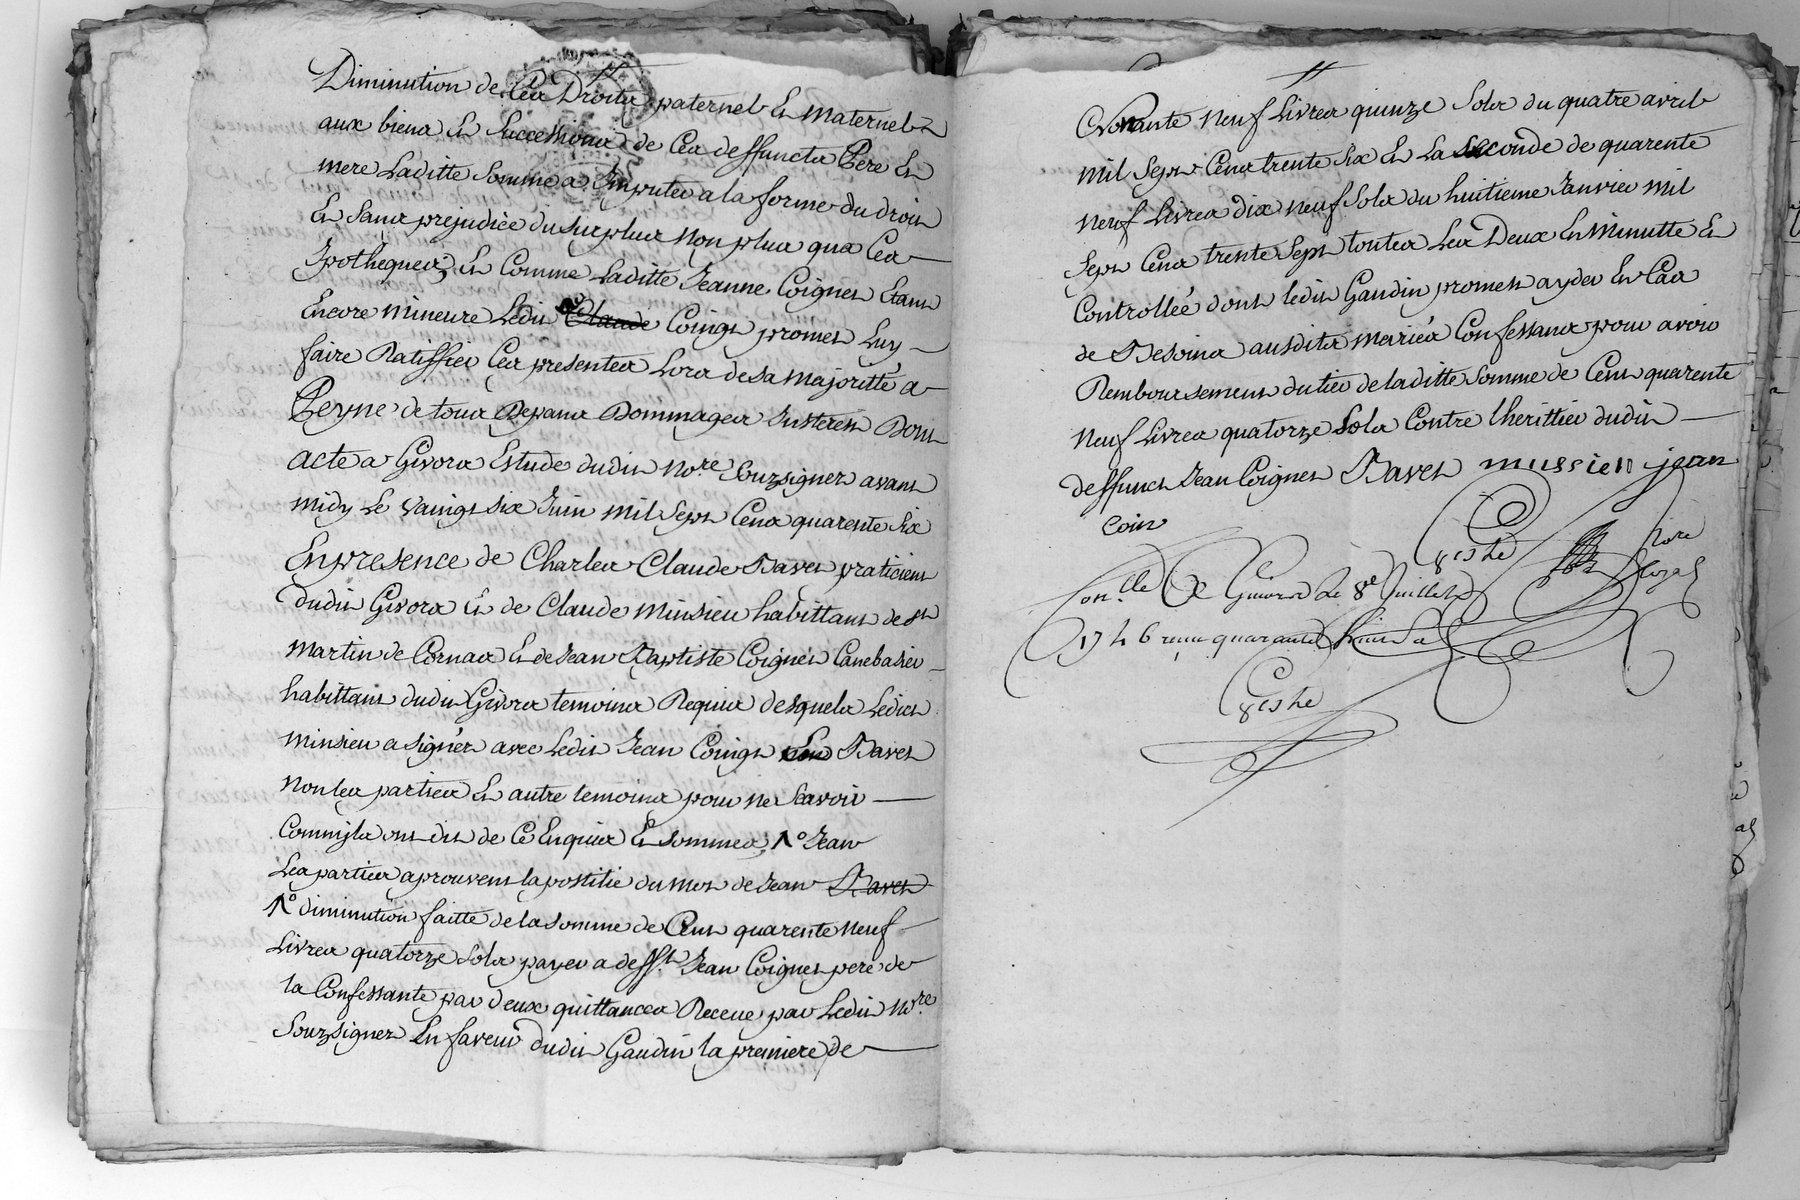 Diminution de Ces Droits paternels Et maternels
aux biens Et Successions de Ces deffuncts Pere Et
mere Laditte Somme a Imputer a la forme du droit
Et Sans prejudice du Surplus non plus que Ces
Ypotheques; Et Comme Laditte Jeanne Coignet Etant
Encore mineure Ledit 1º Claude Coingt promet Luy
faire Ratiffier Ces presentes Lors de sa majoritté a
Peyne de tous Depans Dommages Interest Dont
acte a Givors Estude dudit no.re Souzsignez avant
midy Le vaingt six Juin mil Sept Cens quarente Six
En presence de Charles Claude Bavet praticien
dudit Givors Et de Claude minsieu habittant de St
martin de Cornas Et de Jean Baptiste Coignet Canebasier
habittant dudit Givors temoins Requis desquels Ledict
minsieu a signér avec Ledit Jean Coingt Bavet
non les parties Et autre temoins pour ne Scavoir
Comm'ils ont dit de Ce Enquis Et sommes, 1º Jean
Les parties aprouvent la postille du mot de Jean Bavet
1º diminution faitte de la somme de Cent quarente neuf
Livres quatorze Sols payer a deff.t Jean Coignet pere de
la Confessante par deux quittances Receue par Ledit no.re
Souzsignez En faveur dudit Gaudin la premiere de
nonante neuf Livres quinze Sols du quatre avril
mil Sept Cens trente Six Et La seconde de quarente
neuf Livres dix neuf Sols du huitieme Janvier mil
Sept Cens trente Sept toutes Les Deux En minutte Et
Controllée dont ledit Gaudin promet ayder En Cas
de Besoins ausdits mariés Confessants pour avoir
Remboursement du tier de laditte somme de Cent quarente
neuf Livres quatorze Sols Contre l'herittier dudit
deffunct Jean Coignet Bavet mussieu jean
coin
Con.lle A Givors Le 8e Juillet
1746 reçu quarante huit s